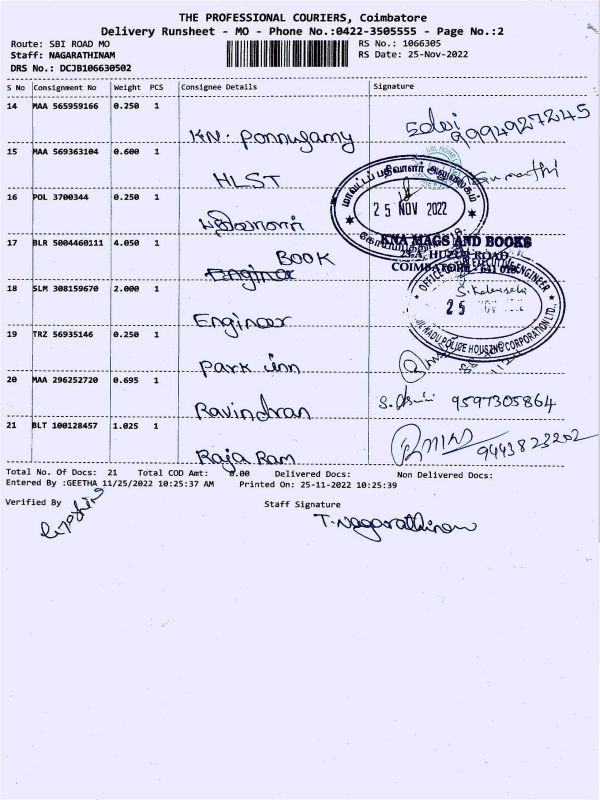 THE PROFESSIONAL COURIERS, Coimbatore
Delivery Runsheet - MO - Phone No.:0422-3505555 - Page No.:2
Route: SBI ROAD MO
Staff: NAGARATHINAM
DRS No.: DCJB106630502
RS No.: 1066305
RS Date: 25-Nov-2022
S No Consignment No Weight PCS Consignee Details Signature
14 MAA 565959166 0.250 1
KN. Ponnusamy
9994927245
15 MAA 569363104 0.600 1
HLST
16 POL 3700344 0.250 1
மாவட்ட பதிவாளர் அலுவலகம்
25 NOV 2022
17 BLR 5004460111 4.050 1
BOOK
Engineer
KNA MAGS AND BOOKS
25-A, HUZUR ROAD,
COIMBATORE - 641 018
18 SLM 308159670 2.000 1
Engineer
25
TAMIL NADU POLICE HOUSING CORPORATION LTD.,
19 TRZ 56935146 0.250 1
Park inn
20 MAA 296252720 0.695 1
Ravindran
9597305864
21 BLT 100128457 1.025 1
Raja Ram
9443823202
Total No. Of Docs: 21 Total COD Amt: 0.00 Delivered Docs: Non Delivered Docs:
Entered By :GEETHA 11/25/2022 10:25:37 AM Printed On: 25-11-2022 10:25:39
Verified By
Staff Signature
T. Nagarathinam